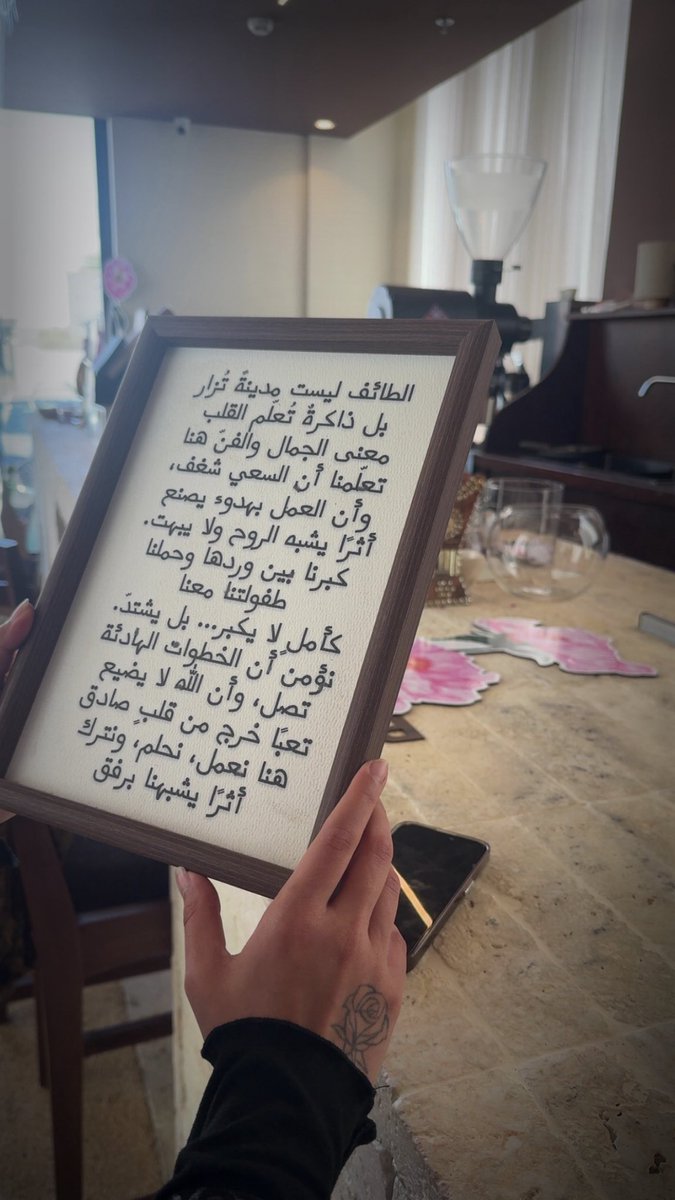 الطائف ليست مدينةً تُزار
بل ذاكرةٌ تُعلّم القلب
معنى الجمال والفنّ هنا
تعلّمنا أن السعي شغف،
وأن العمل بهدوء يصنع
أثرًا يشبه الروح ولا يبهت.
كبرنا بين وردها وحملنا
طفولتنا معنا
كأملٍ لا يكبر... بل يشتدّ.
نؤمن أن الخطوات الهادئة
تصل، وأن الله لا يضيع
تعبًا خرج من قلبٍ صادق
هنا نعمل، نحلم، ونترك
أثرًا يشبهنا برفق